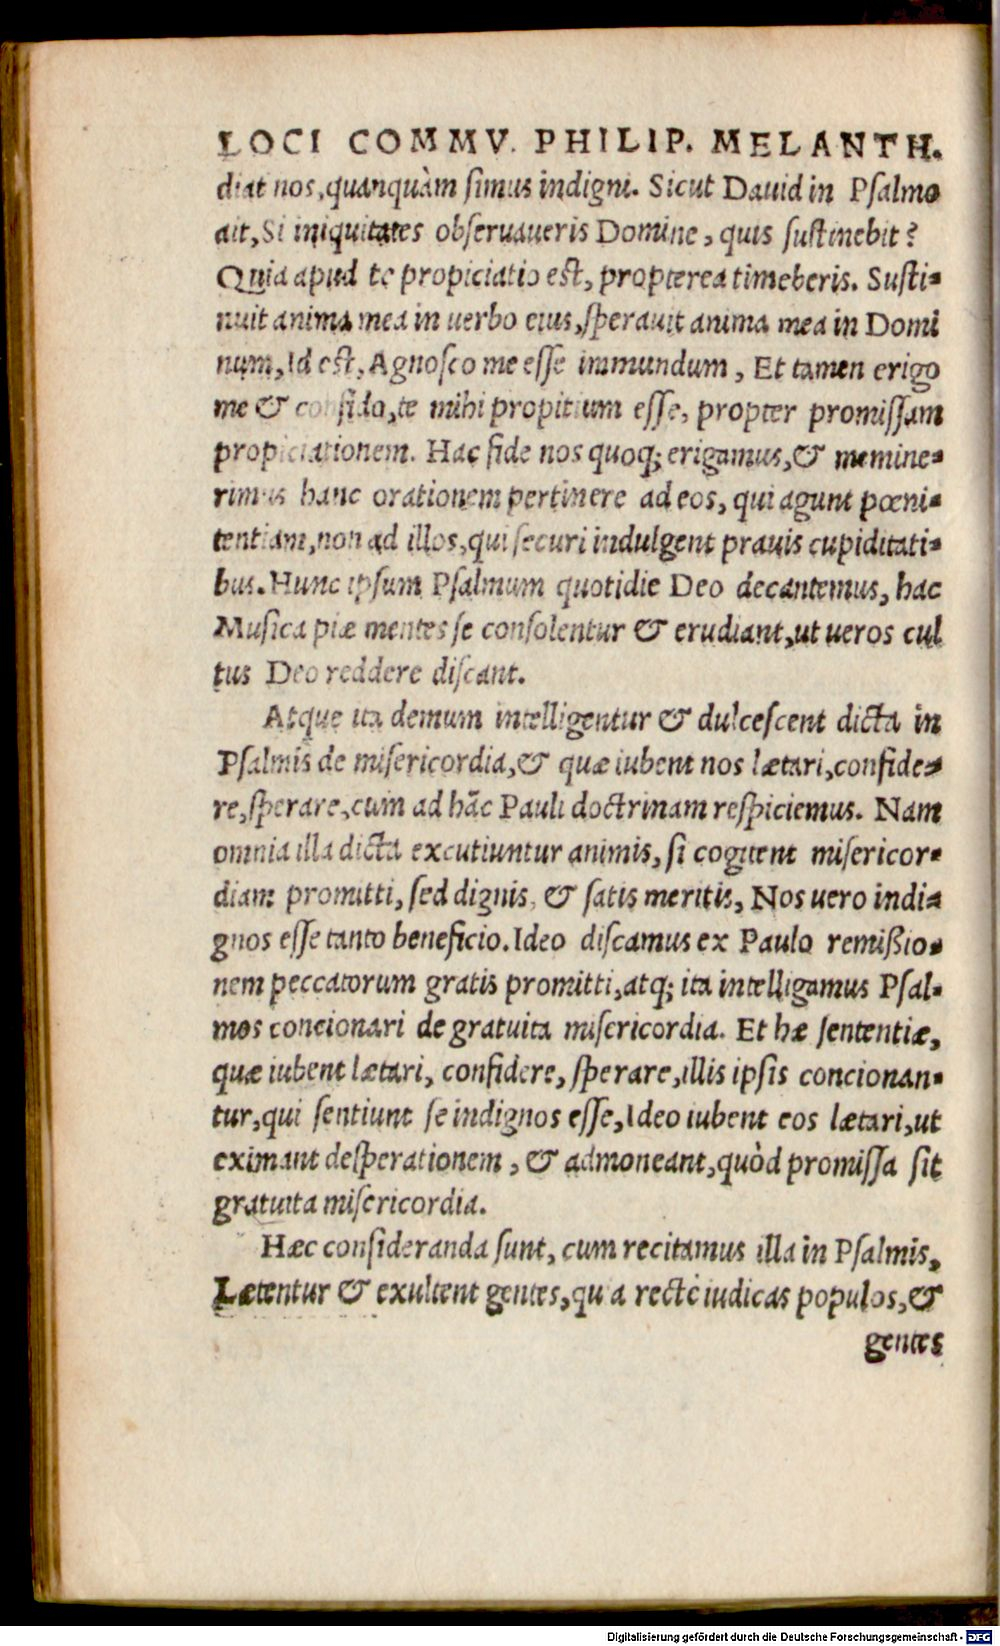 LOCI COMMV. PHILIP. MELANTH.
diat nos, quanquàm simus indigni. Sicut Dauid in Psalmo
ait, Si iniquitates obseruaueris Domine, quis sustinebit?
Quia apud te propiciatio est, propterea timeberis. Susti-
nuit anima mea in uerbo eius, sperauit anima mea in Domi
num, Id est, Agnosco me esse immundum, Et tamen erigo
me & confido, te mihi propitium esse, propter promissam
propiciationem. Hac fide nos quoq; erigamus, & memine-
rimus hanc orationem pertinere ad eos, qui agunt pœni-
tentiam, non ad illos, qui securi indulgent prauis cupiditati-
bus. Hunc ipsum Psalmum quotidie Deo decantemus, hac
Musica piæ mentes se consolentur & erudiant, ut ueros cul
tus Deo reddere discant.
Atque ita demum intelligentur & dulcescent dicta in
Psalmis de misericordia, & quæ iubent nos lætari, confide-
re, sperare, cum ad hãc Pauli doctrinam respiciemus. Nam
omnia illa dicta excutiuntur animis, si cogitent misericor-
diam promitti, sed dignis, & satis meritis, Nos uero indi-
gnos esse tanto beneficio. Ideo discamus ex Paulo remißio-
nem peccatorum gratis promitti, atq; ita intelligamus Psal-
mos concionari de gratuita misericordia. Et hæ sententiæ,
quæ iubent lætari, confidere, sperare, illis ipsis concionan-
tur, qui sentiunt se indignos esse, Ideo iubent eos lætari, ut
eximant desperationem, & admoneant, quòd promissa sit
gratuita misericordia.
Hæc consideranda sunt, cum recitamus illa in Psalmis,
Lætentur & exultent gentes, qu a rectè iudicas populos, &
gentes
Digitalisierung gefördert durch die Deutsche Forschungsgemeinschaft - DFG